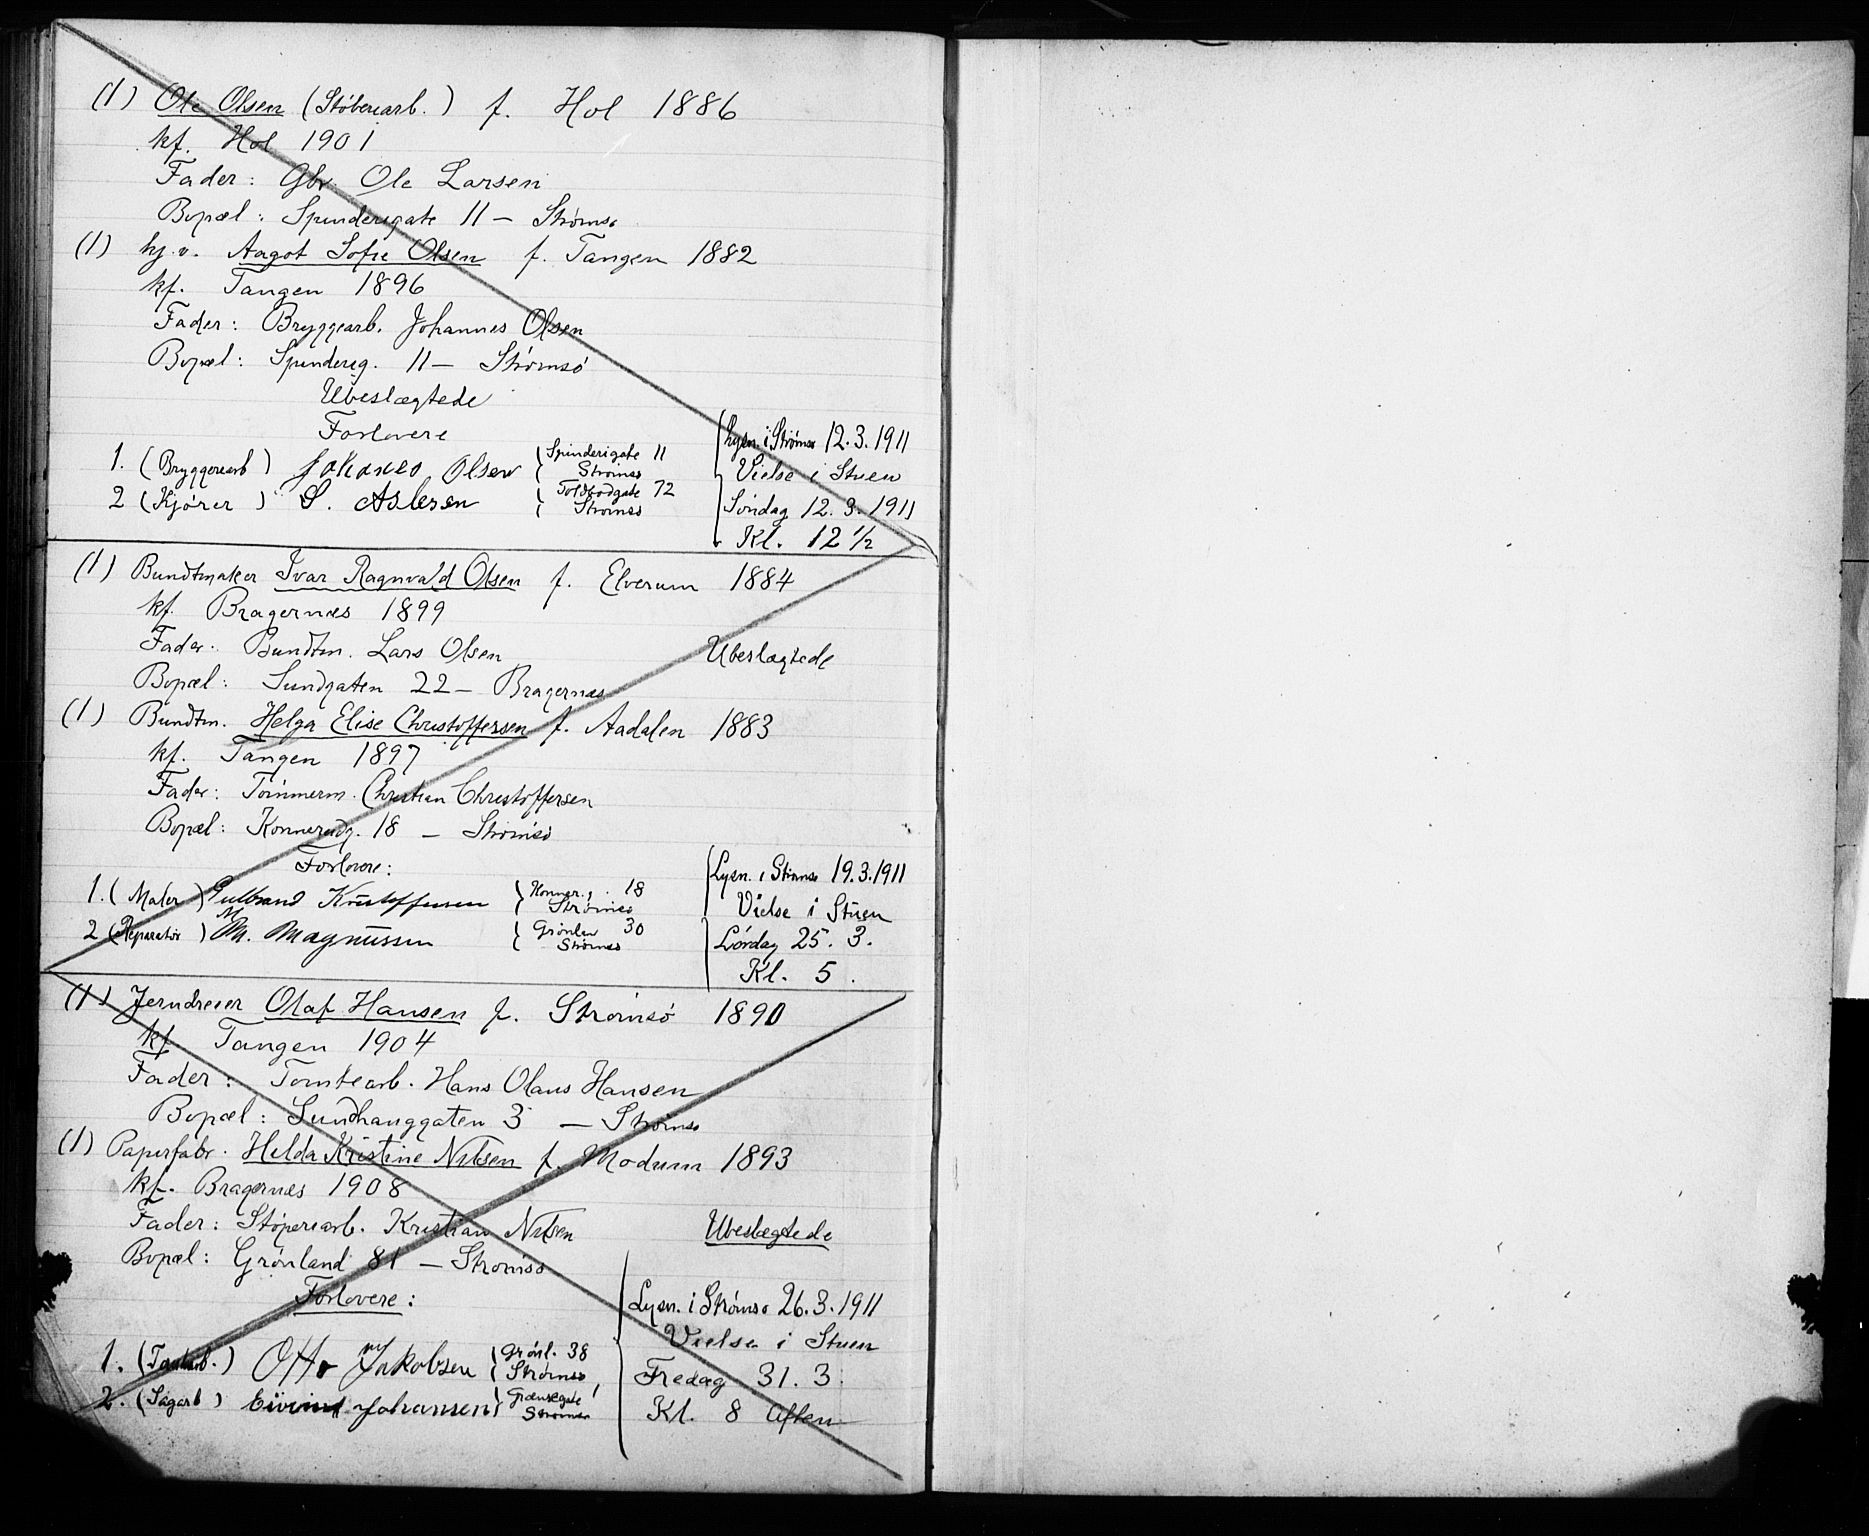 (1) Ole Olsen (Støberiarb.) f. Hol 1886
kf. Hol 1901
Fader: Gbr. Ole Larsen
Bopæl: Spinderigate 11 — Strømsø
(1) hj.v. Aagot Sofie Olsen f. Tangen 1882
kf. Tangen 1896
Fader: Bryggearb. Johannes Olsen
Bopæl: Spinderig. 11 — Strømsø
Ubeslægtede
Forlovere
1. (Bryggeriarb) Johanes Olsen Spinderigate 11 Strømsø
2 (Kjører) S. Aslesen Toldbodgate 72 Strømsø
Lysn. i Strømsø 12.3.1911
Vielse i Stuen
Søndag 12.3.1911
Kl. 12 1/2
(1) Bundtmaker Ivar Ragnvald Olsen f. Elverum 1884
kf. Bragernæs 1899
Fader: Bundtm. Lars Olsen
Ubeslægtede
Bopæl: Sundgaten 22 — Bragernæs
(1) Bundtm. Helga Elise Christoffersen f. Aadalen 1883
kf. Tangen 1897
Fader: Tømmerm. Christian Christoffersen
Bopæl: Konnerudg. 18 — Strømsø
Forlovere:
1. (Maler) Gulbrand Kristoffersen Konner.g. 18 Strømsø
2 (Reparatør) M. Magnussen Grønlan 30 Strømsø
Lysn. i Strømsø 19.3.1911
Vielse i Stuen
Lørdag 25.3.
Kl. 5.
(1) Jerndreier Olaf Hansen f. Strømsø 1890
kf. Tangen 1904
Fader: Tomtearb. Hans Olaus Hansen
Bopæl: Sundhauggaten 3 — Strømsø
(1) Papirfabr. Hilda Kristine Nilsen f. Modum 1893
kf. Bragernæs 1908
Fader: Støperiarb. Kristian Nilsen
Ubeslægtede
Bopæl: Grønland 81 — Strømsø
Forlovere:
1. (Tomtarb.) Otto Jakobsen Grønl. 38 Strømsø
2. (Sagarb) Eivind Johansen Grænsegate 1 Strømsø
Lysn. i Strømsø 26.3.1911
Vielse i Stuen
Fredag 31.3.
Kl. 8 Aften